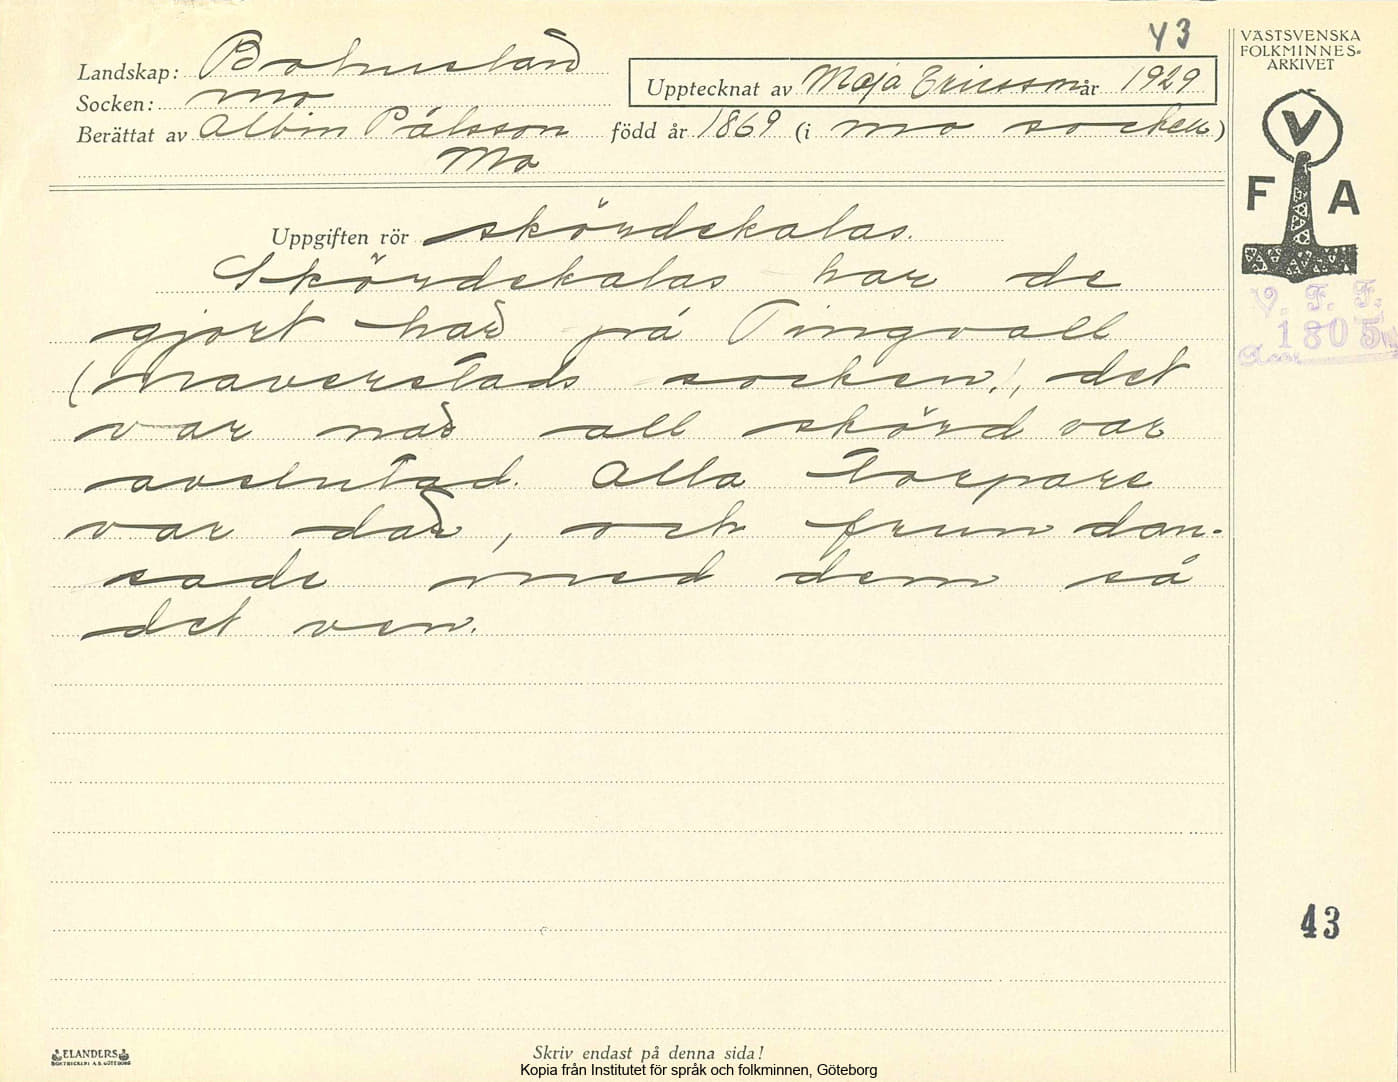 43
VÄSTSVENSKA
FOLKMINNES-
ARKIVET
Landskap: Bohuslän
Upptecknat av Maja Ericsson år 1929
Socken: Mo
Berättat av Albin Pålsson född år 1869 (i Mo socken)
Mo
V
F A
Uppgiften rör skördekalas.
Skördekalas har de
gjort här på Tingvall
(Naverstads socken), det
var när all skörd var
avslutad. Alla torpare
var där, och frun dan-
sade med dem så
det ven.
V. F. F.
1805
43
ELANDERS
BOKTRYCKERI A.B. GÖTEBORG
Skriv endast på denna sida!
Kopia från Institutet för språk och folkminnen, Göteborg